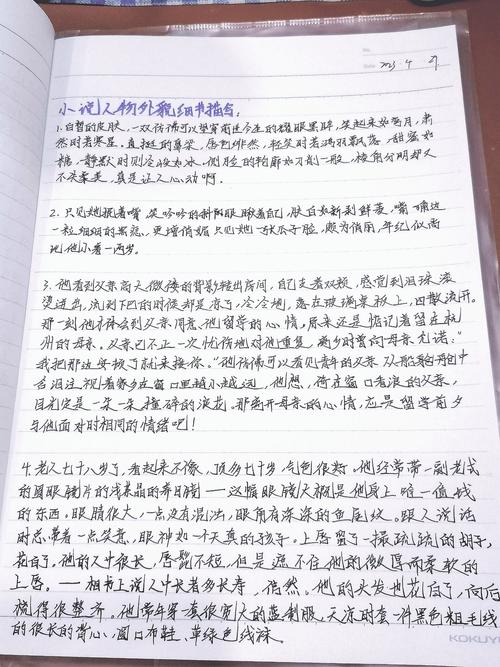 No.
Date
小说人物外貌细节描写:
1.白皙的皮肤,一双仿佛可以望穿前世今生的耀眼黑眸,笑起来如弯月,肃
然时若寒星。直挺的鼻梁,唇色绯然,轻笑时若鸿羽飘落,甜蜜如
糖,静默时则冷峻如冰。侧脸的轮廓如刀削一般,棱角分明却又
不失柔美,真是让人心动啊。
2.只见她抿着嘴,笑吟吟的斜阳眼瞅着自己,肤白如新剥鲜菱,嘴角边
一粒细细的黑痣,更增俏媚,只见她一张瓜子脸,颇为俏丽,年纪似乎
比他小着一两岁。
3.他看到父亲高大微偻的背影转出房间,自己支着双颊,感觉到泪珠滚
烫迸出,流到下巴的时候却是凉了,冷冷地,落在玻璃桌板上,四散流开。
那一刻他才体会到父亲同意他留学的心情,原来还是惦记着留在杭
州的母亲。父亲已不止一次忧伤地对他重复,离乡时曾向母亲允诺:“
我把那边安顿了就来接你。”他仿佛可以看见青年的父亲从船舱中
含泪注视着家乡在窗口里越小越远,他想,倚在窗口看浪的父亲,
目光定是一朵一朵撞碎的浪花。那离开母亲的心情,应是留学前夕
与他面对时相同的情绪吧!
4.老人七十八岁了,看起来不像,顶多七十岁,气色很好。他经常带一副老式
的圆眼镜片的浅茶晶的养目镜——这幅眼镜大概是他身上唯一值钱
的东西。眼睛很大,一点没有混浊,眼角有深深的鱼尾纹。跟人说话
时总带着一点笑意,眼神如一个天真的孩子。上唇留了一撮疏疏的胡子,
花白了。他的人中很长,唇髭不短,但是遮不住他的微厚而柔软的
上唇。——相书上说人中长者多长寿,信然。他的头发也花白了,向后
梳得很整齐。他常年穿一套很宽大的蓝制服,天凉时套一件黑色粗毛线
的很长的背心。圆口布鞋、草绿色线袜。
KOKUYO